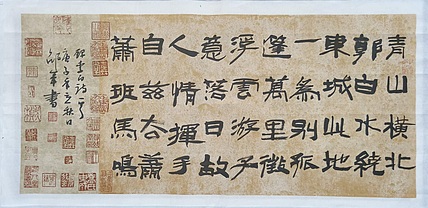 青山橫北
郭白水繞
東城此地
一為別孤
蓬萬里徵
浮雲游子
意落日故
人情揮手
自茲去蕭
蕭班馬鳴
錄李白詩一首
庚子年立秋日
書